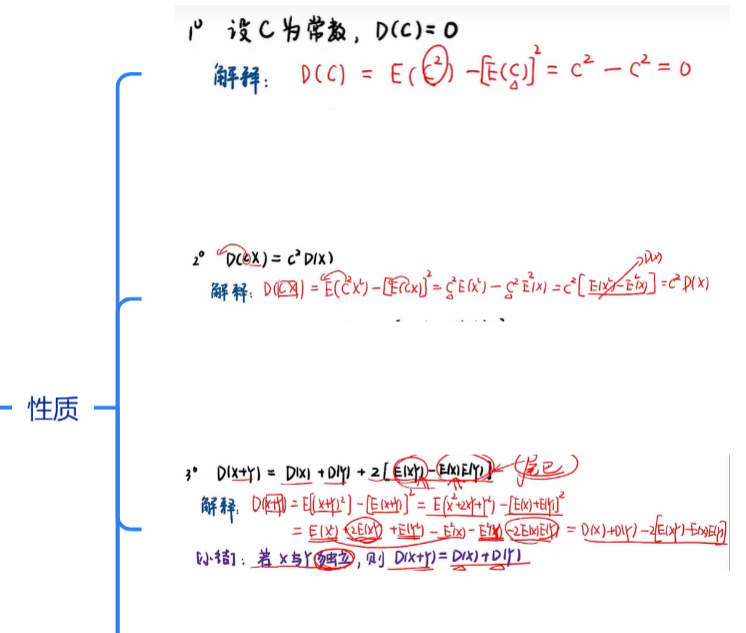 1° 设 C 为常数, D(C) = 0
解释: D(C) = E(C²) - [E(C)]² = C² - C² = 0
2° D(CX) = C²D(X)
D(X)
解释: D(CX) = E(C²X²) - [E(CX)]² = C²E(X²) - C²E²(X) = C²[E(X²) - E²(X)] = C²D(X)
性质
3° D(X+Y) = D(X) + D(Y) + 2[E(XY) - E(X)E(Y)] 尾巴
解释: D(X+Y) = E[(X+Y)²] - [E(X+Y)]² = E(X²+2XY+Y²) - [E(X)+E(Y)]²
= E(X²) + 2E(XY) + E(Y²) - E²(X) - E²(Y) - 2E(X)E(Y) = D(X) + D(Y) - 2[E(XY) - E(X)E(Y)]
[小结]: 若 X 与 Y 独立, 则 D(X+Y) = D(X) + D(Y)